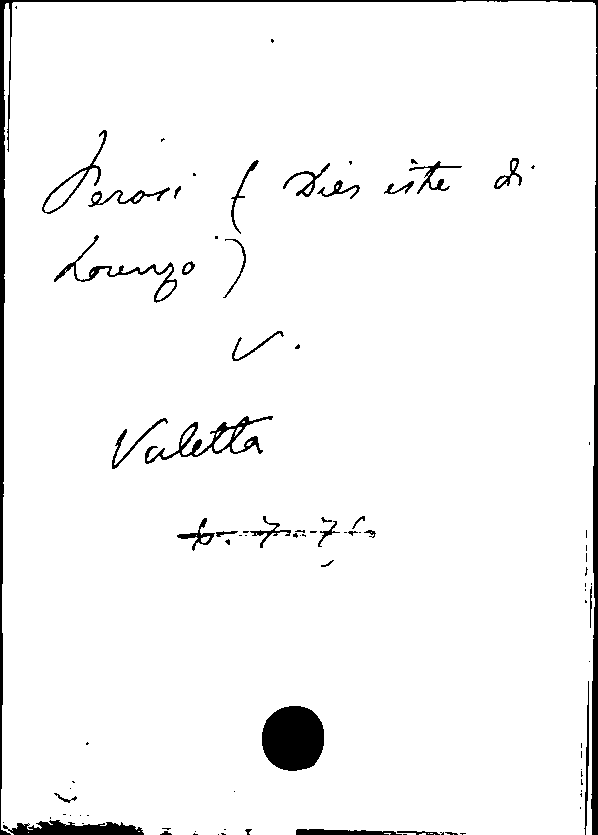 Perosi ( Dies iste di
Lorenzo )
V.
Valetta